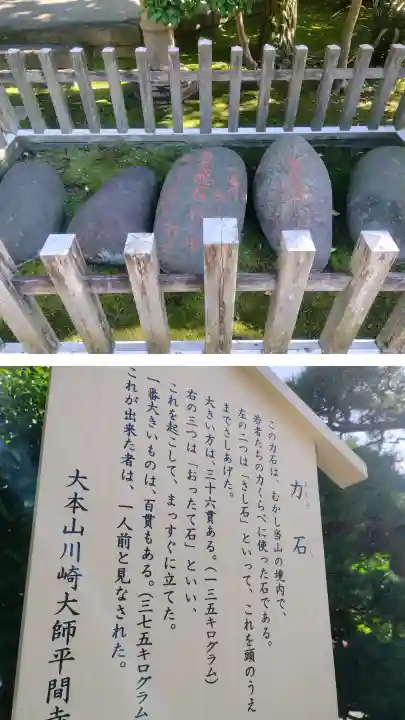 力石
ちからいし
この力石は、むかし当山の境内で、
若者たちの力くらべに使った石である。
左の二つは「さし石」といって、これを頭のうえ
までさしあげた。
大きい方は、三十六貫ある。（一三五キログラム）
右の三つは「おったて石」といい、
これを起こして、まっすぐに立てた。
一番大きいものは、百貫もある。（三七五キログラム
これが出来た者は、一人前と見なされた。
大本山川崎大師平間寺